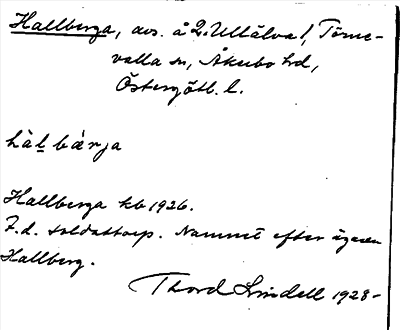 Hallberga, avs. å 2. Ullälva 1, Törne-
valla sn, Åkerbo hd,
Östergötl. l.
hàlbärja
Hallberga kb 1926.
F.d. soldattorp. Namnet efter ägaren
Hallberg.
Thord Lindell 1928-